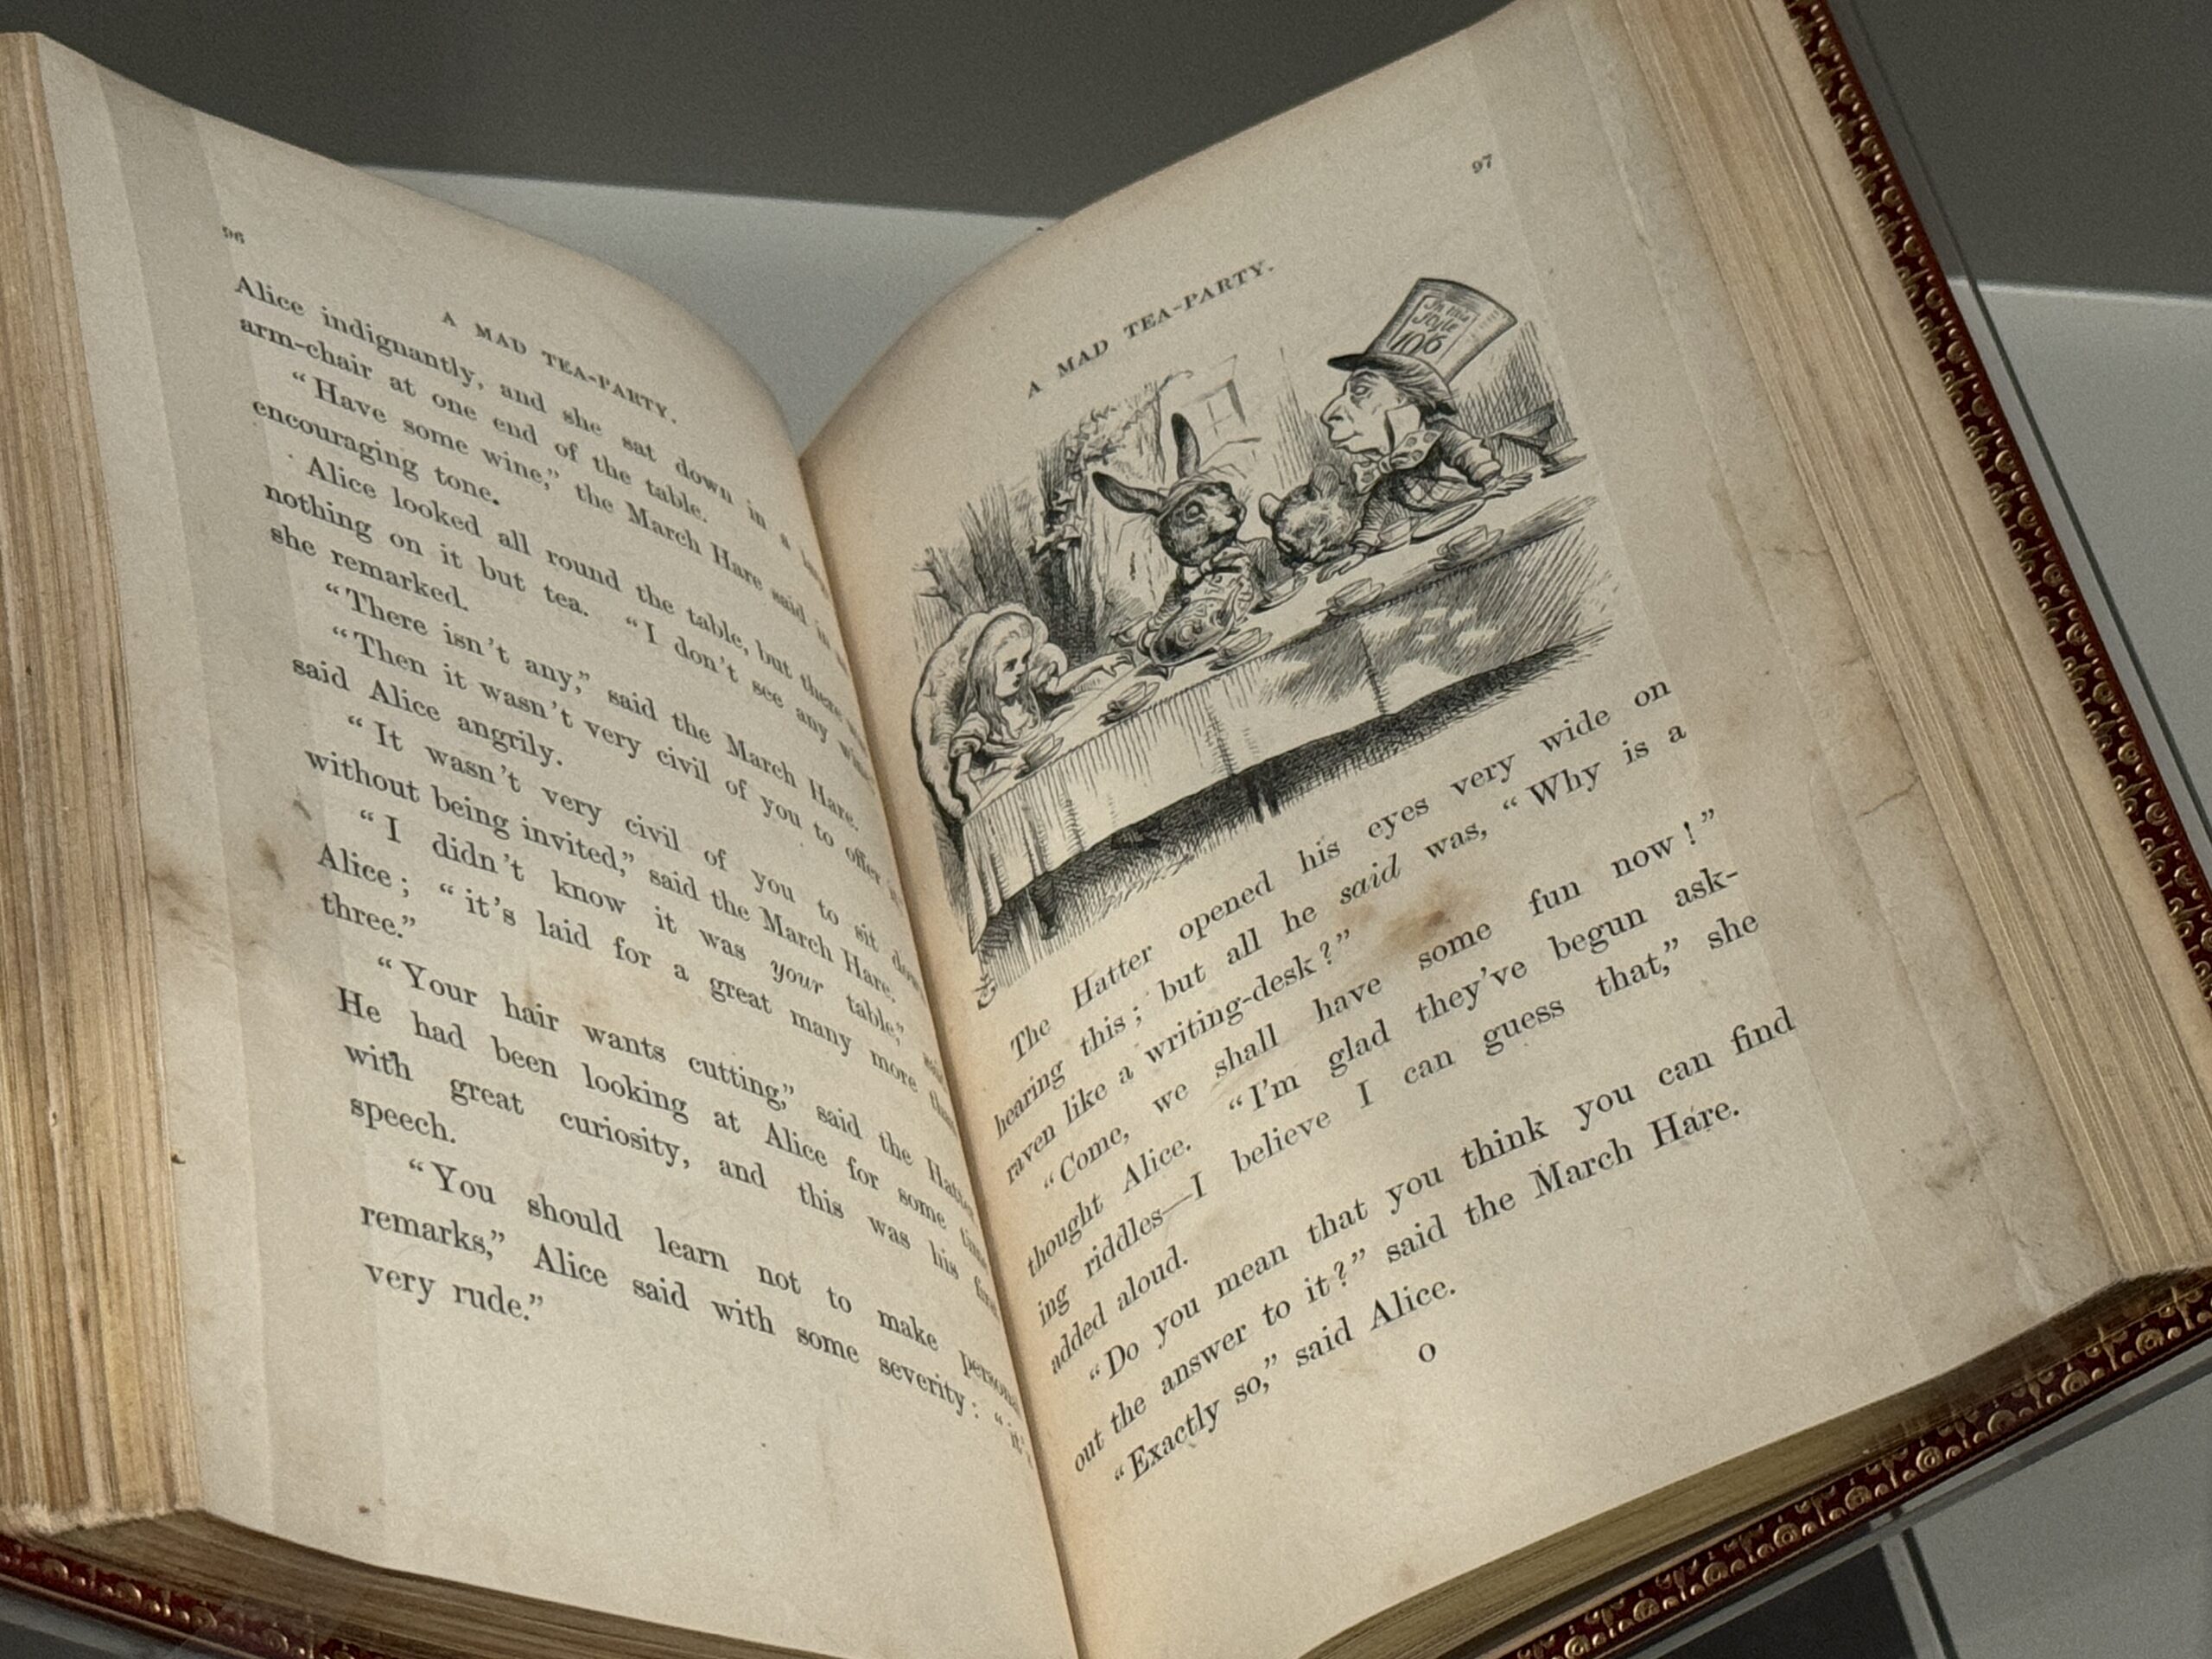 96
A MAD TEA-PARTY.
Alice indignantly, and she sat down in a
arm-chair at one end of the table.
“Have some wine,” the March Hare said in
encouraging tone.
Alice looked all round the table, but there
nothing on it but tea. “I don’t see any
she remarked.
“There isn’t any,” said the March Hare.
“Then it wasn’t very civil of you to offer
said Alice angrily.
“It wasn’t very civil of you to sit down
without being invited,” said the March Hare.
“I didn’t know it was your table,” said
Alice; “it’s laid for a great many more than
three.”
“Your hair wants cutting,” said the Hatter
He had been looking at Alice for some time
with great curiosity, and this was his first
speech.
“You should learn not to make personal
remarks,” Alice said with some severity: “it’s
very rude.”
97
A MAD TEA-PARTY.
In this
Style
10/6
The Hatter opened his eyes very wide on
hearing this; but all he said was, “Why is a
raven like a writing-desk?”
“Come, we shall have some fun now!”
thought Alice. “I’m glad they’ve begun ask-
ing riddles—I believe I can guess that,” she
added aloud.
“Do you mean that you think you can find
out the answer to it?” said the March Hare.
“Exactly so,” said Alice.
O